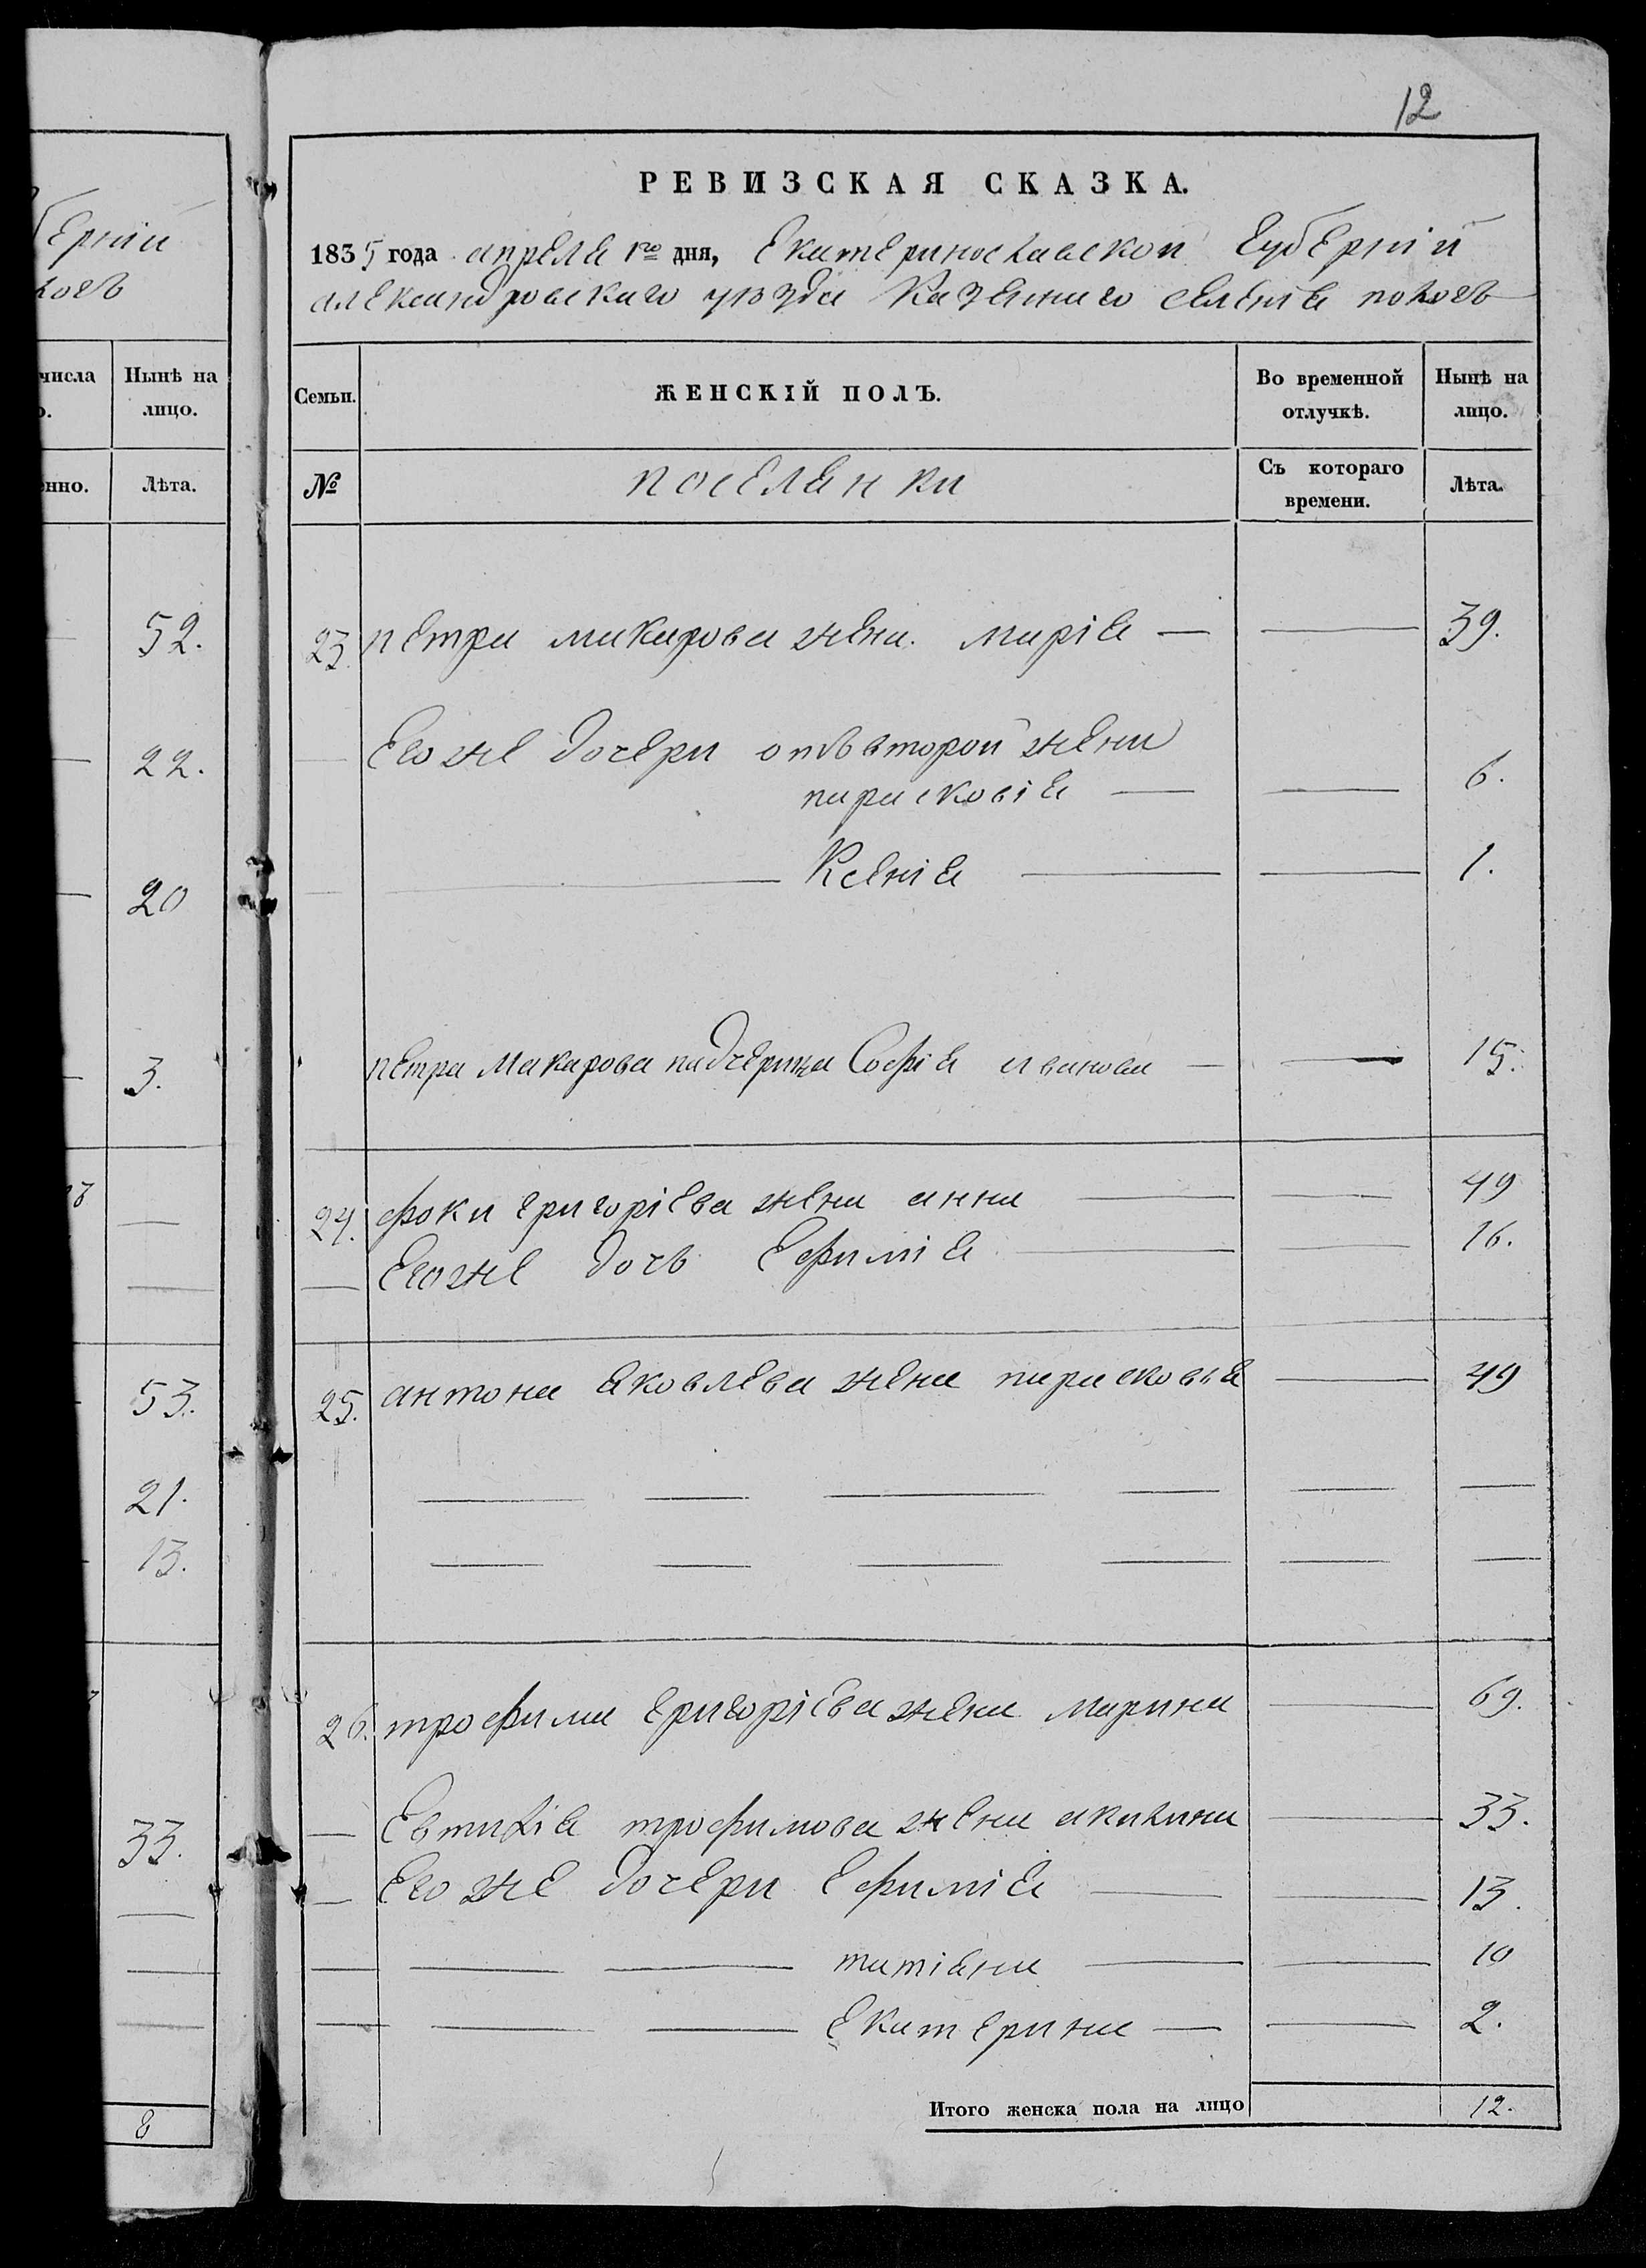 берніи
ловъ
числа
Нынѣ на
лицо.
енно.
Лѣта.
52.
22.
20
3.
53.
21.
13.
33.
8
12
РЕВИЗСКАЯ СКАЗКА.
1835 года апреля 1го дня, Екатеринославской Губерніи
александровскаго уѣзда Казеннаго селенія пологъ
Семьи.
ЖЕНСКІЙ ПОЛЪ.
Во временной отлучкѣ.
Нынѣ на лицо.
№
поселянки
Съ котораго времени.
Лѣта.
23. петра макарова жена марія — — 39.
Его же дочери отъ второй жены
парасковія — — 6.
Ксенія — — 1.
петра Макарова падчерица Софія иванова — — 15.
24. фоки григоріева жена анна — — 49
Его же дочь Ефимія — — 16.
25. антона яковлева жена парасковія — 49
26. трофима григоріева жена марина — 69.
Евтихія трофимова жена акилина — 33.
Его же дочери Ефимія — — 13.
татіяна — — 10
Екатерина — — 2.
Итого женска пола на лицо 12.